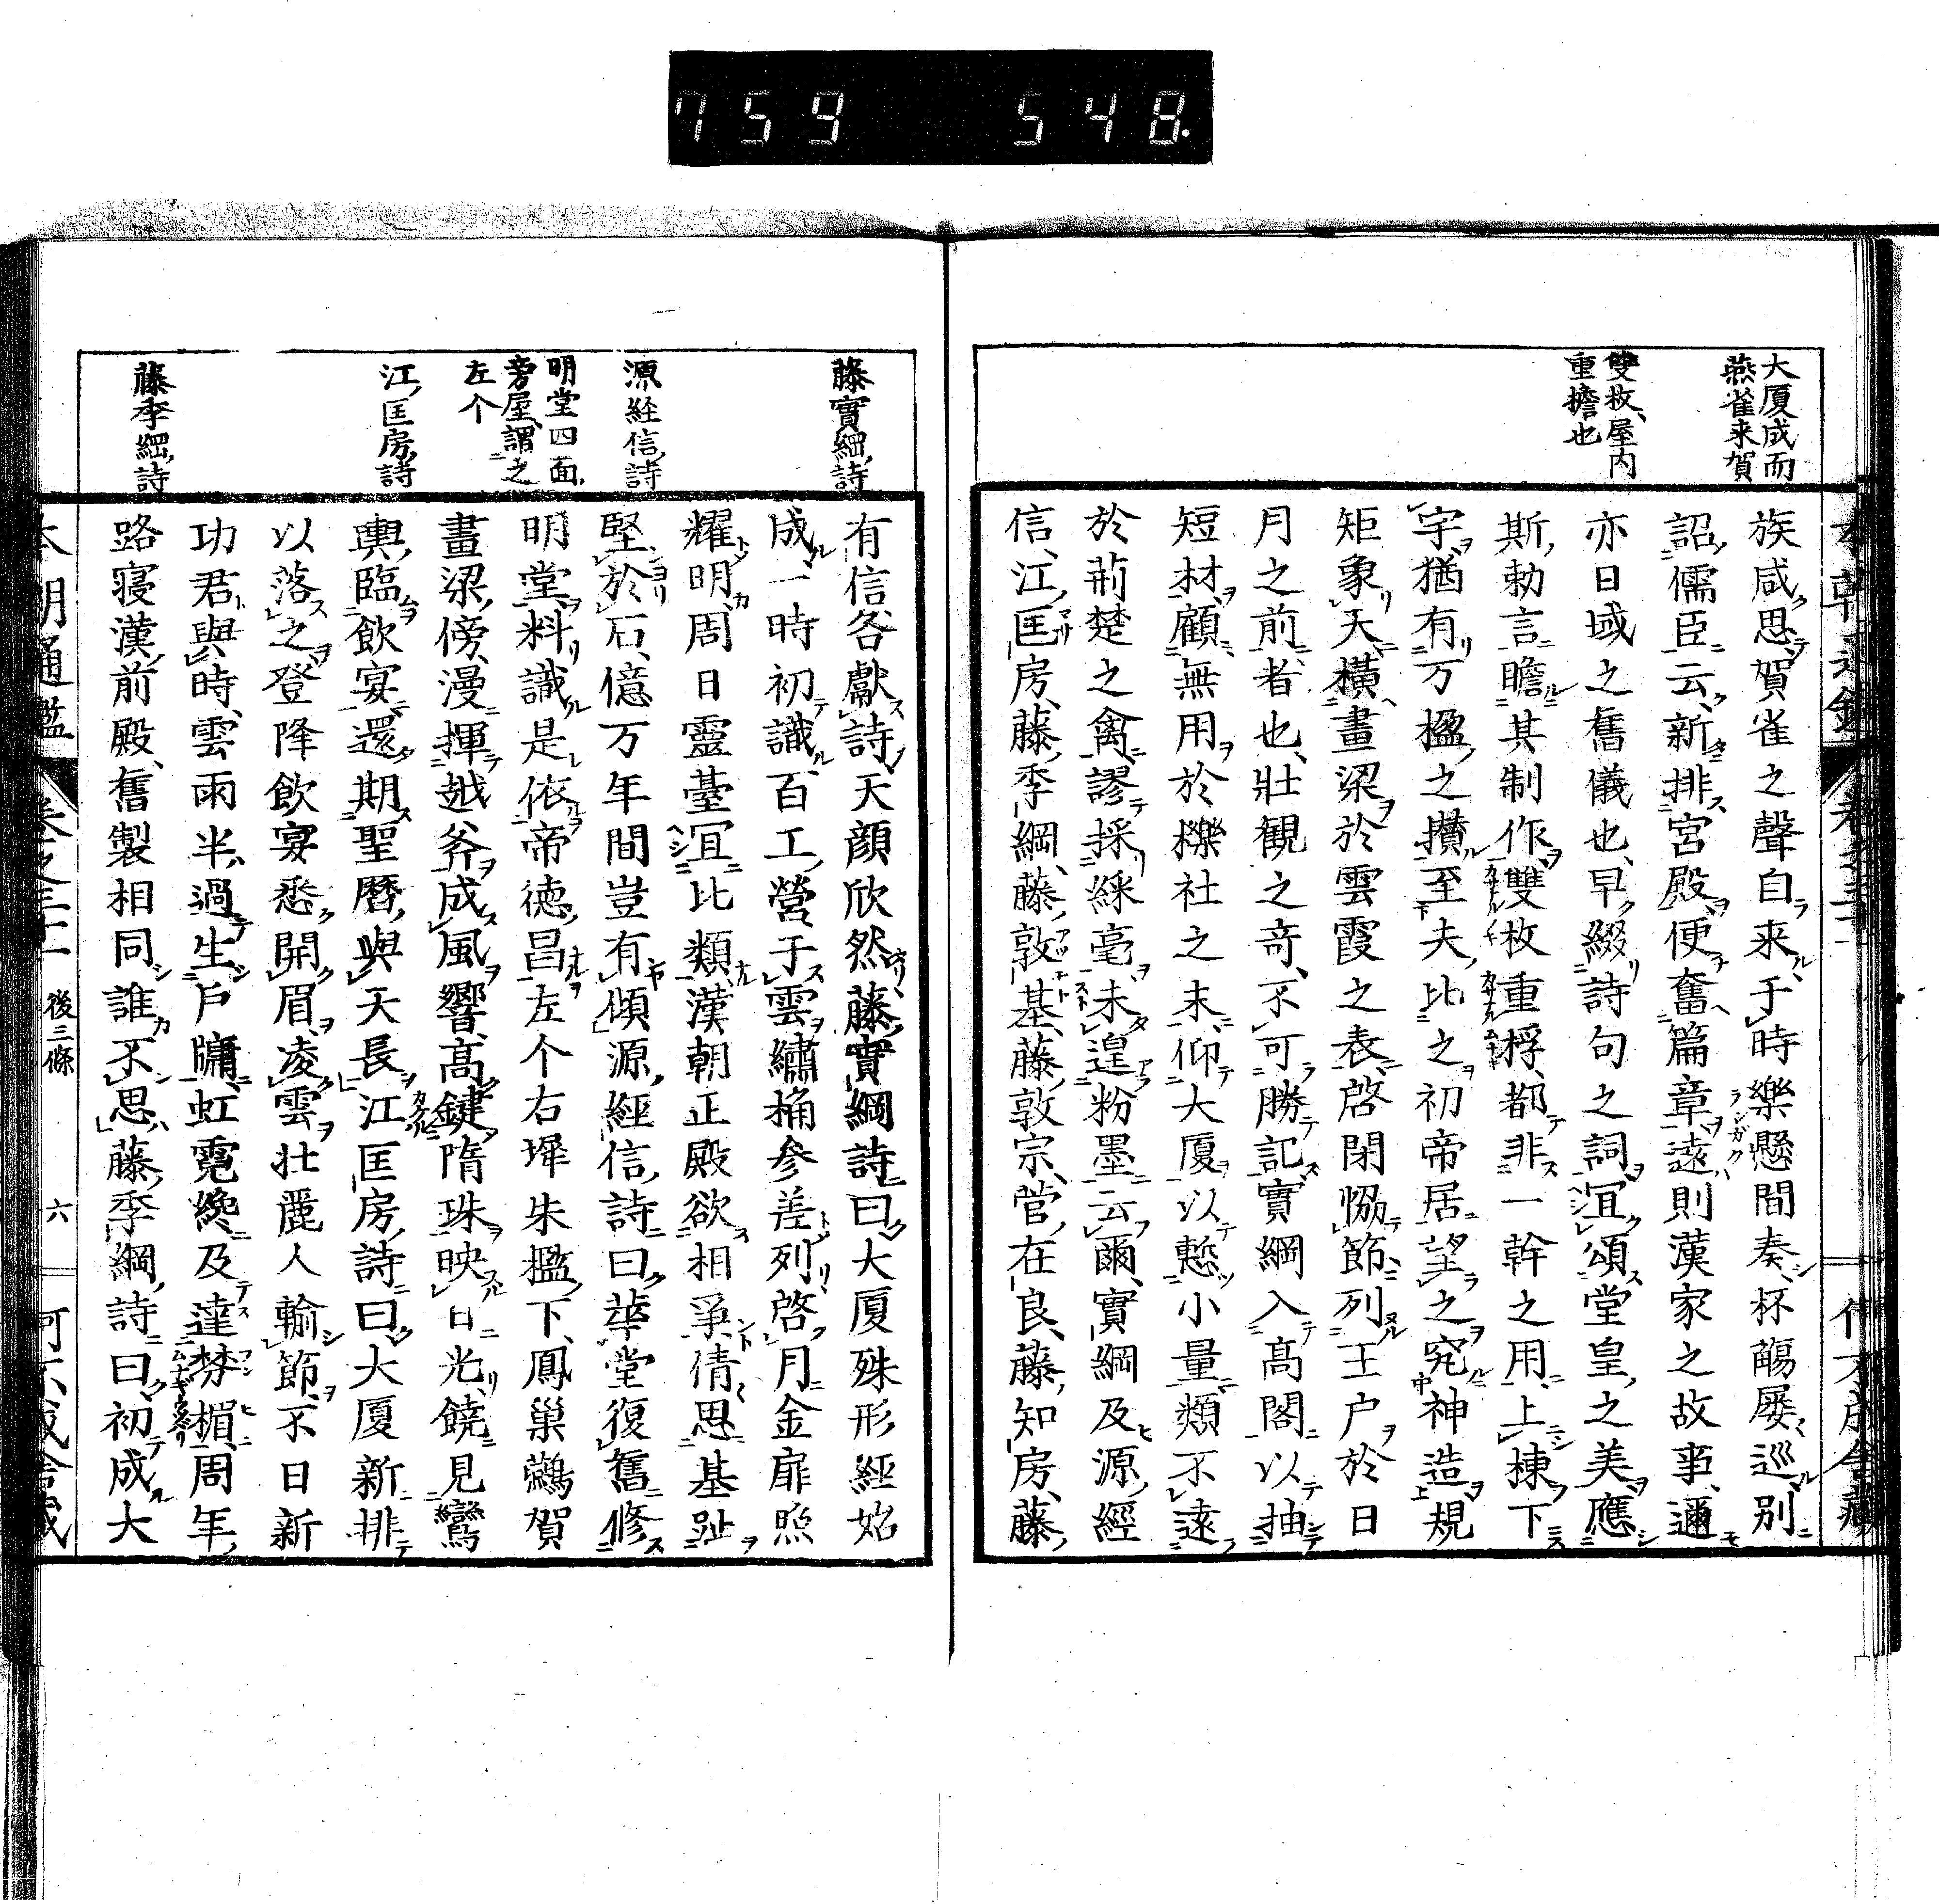 759 548
大厦成而
燕雀来賀
雙枚、屋内
重擔也
族咸思賀雀之聲自来于時樂懸間奏杯觴屡巡別
詔儒臣云新排宮殿便奮篇章遠則漢家之故事邇
亦日域之舊儀也早綴詩句之詞宜頌堂皇之美應
斯勅言瞻其制作雙枚重桴都非一幹之用上棟下
宇猶有万楹之攢至夫比之初帝居望之究神造規
矩象天橫畫梁於雲霞之表啓閉惱節列王户於日
月之前者也壯観之奇不可勝記實綱入髙閣以抽
短材顧無用於櫟社之末仰大厦以慙小量類不遠
於荊楚之禽謬採綵毫未遑粉墨云爾實綱及源經
信江匡房藤季綱藤敦基藤敦宗菅在良藤知房藤
藤實綱詩
源経信詩
明堂四面
旁屋謂之
左个
江匡房詩
藤季綱詩
有信各獻詩天顔欣然藤實綱詩曰大厦殊形經始
成一時初識百工營于雲繡桷参差列啓月金扉照
耀明周日靈臺宜比類漢朝正殿欲相爭倩思基趾
堅於石億万年間豈有傾源經信詩曰華堂復舊修
明堂料識是依帝德昌左个右墀朱檻下鳳巢鷰賀
畫梁傍漫揮越斧成風響髙鍵隋珠映日光饒見鸞
輿臨飲宴還期聖暦與天長江匡房詩曰大厦新排
以落之登降飲宴悉開眉凌雲壮麗人輸節不日新
功君與時雲雨半過生戶牖虹霓纔及達棼楣周年
路寝漢前殿舊製相同誰不思藤季綱詩曰初成大
本朝通鑑 卷之三十一 後三條 六